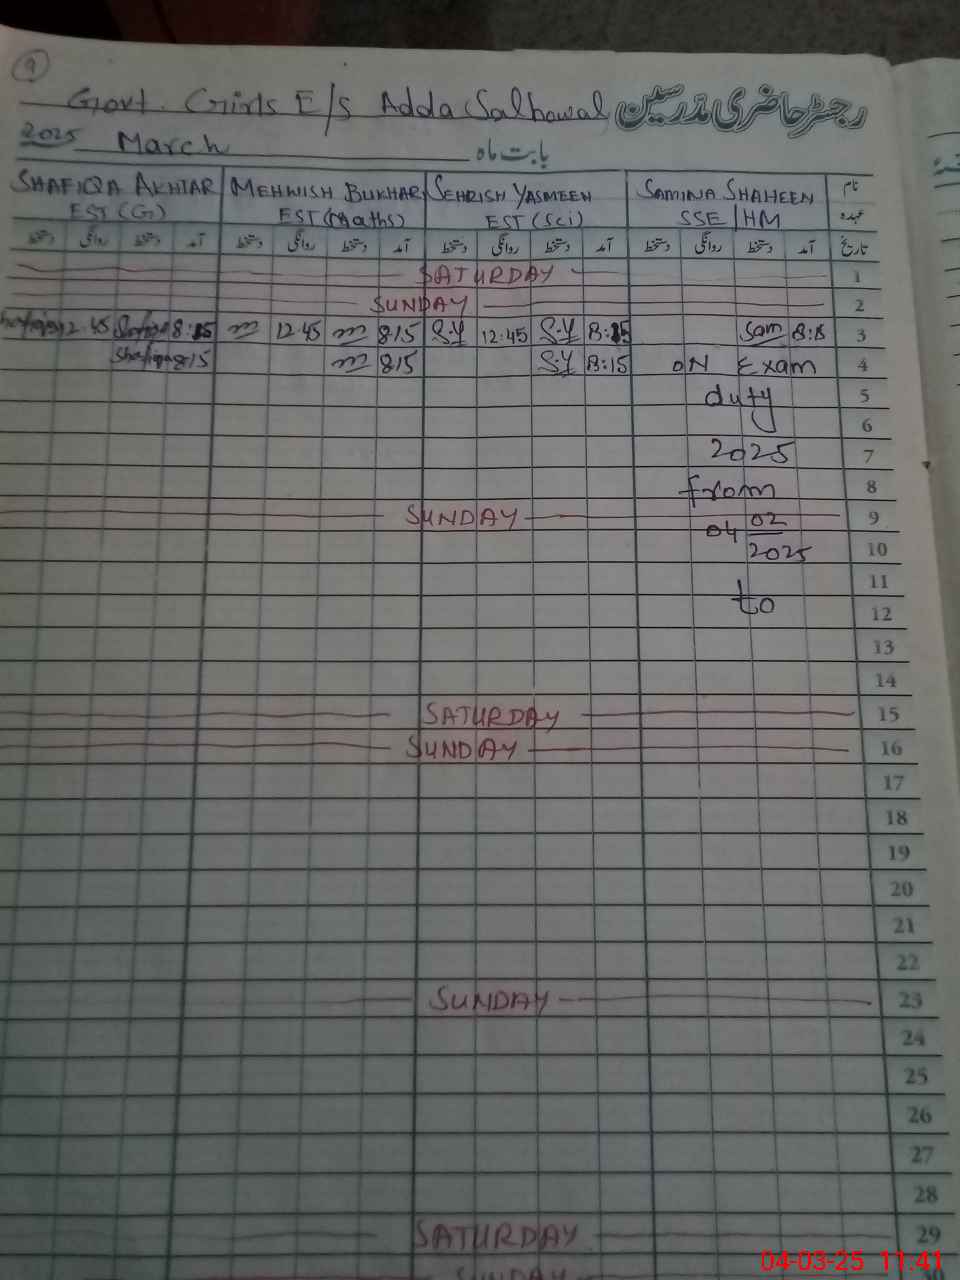 9
Govt. Girls E/S Adda Salhowal رجسٹر حاضری مدرسین
2025 March بابت ماہ
SHAFIQA AKHTAR MEHWISH BUKHARI SEHRISH YASMEEN SAMINA SHAHEEN نام
EST (G) EST (Maths) EST (Sci) SSE/HM عہدہ
دستخط روانگی دستخط آمد دستخط روانگی دستخط آمد دستخط روانگی دستخط آمد دستخط روانگی دستخط آمد تاریخ
SATURDAY 1
SUNDAY 2
12:45 Shafiqa 8:15 m 12:45 m 8:15 S.Y 12:45 S.Y 8:15 Sam 3
Shafiqa 8:15 m 8:15 S.Y 8:15 ON Exam 4
duty 5
6
2025 7
from 8
SUNDAY 9
04 02
2025 10
11
to
12
13
14
SATURDAY 15
SUNDAY 16
17
18
19
20
21
22
SUNDAY 23
24
25
26
27
28
SATURDAY 29
04-03-25 11:41
SUNDAY